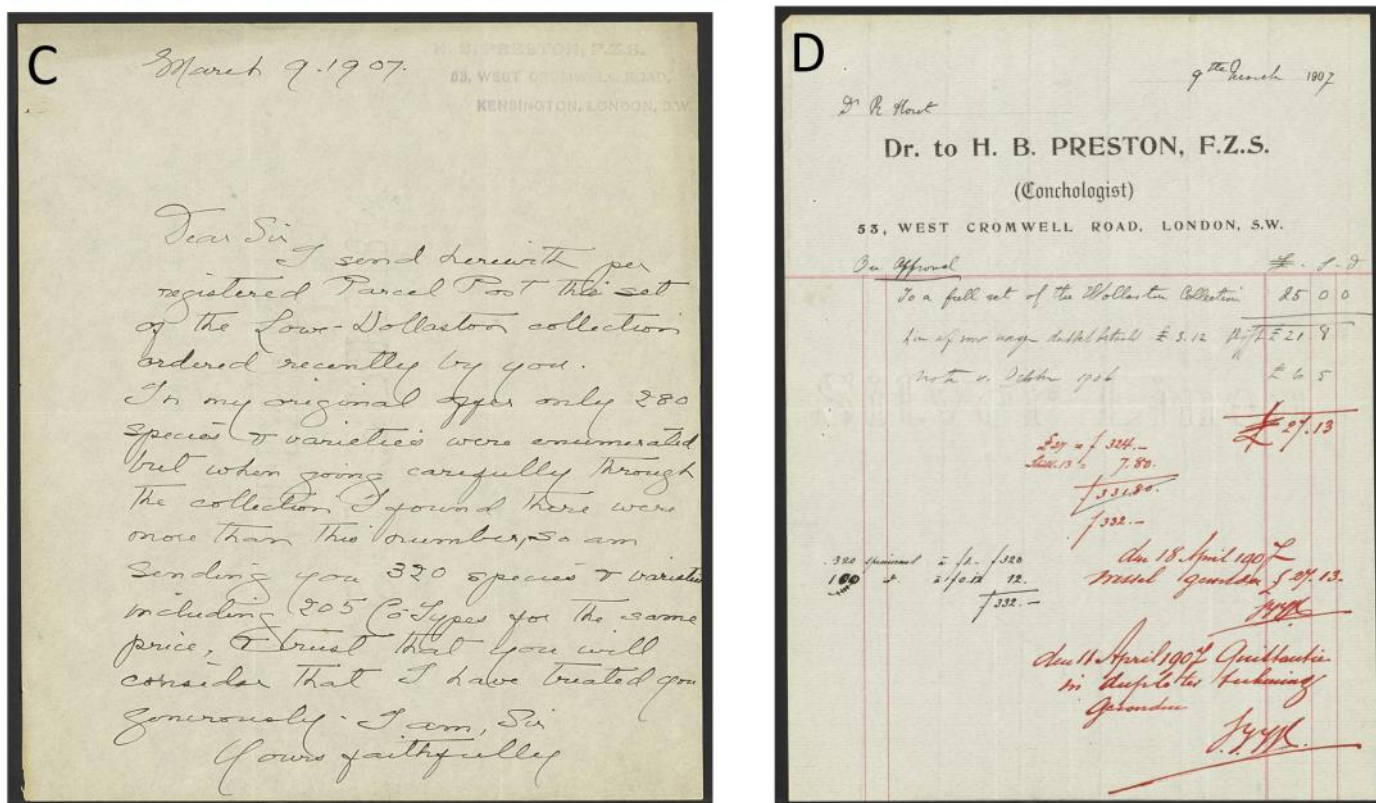 C
March 9.1907.
H. B. PRESTON, F.Z.S.
53, WEST CROMWELL ROAD,
KENSINGTON, LONDON, S.W.
Dear Sir
I send herewith per
registered Parcel Post the set
of the Lowe-Wollaston collection
ordered recently by you.
In my original offer only 280
species & varieties were enumerated
but when going carefully through
the collection I found there were
more than this number, so am
sending you 320 species & varieties
including 205 Co-Types for the same
price, & trust that you will
consider that I have treated you
generously. I am, Sir
Yours faithfully
D
9th March 1907
Dr R Horst
Dr. to H. B. PRESTON, F.Z.S.
(Conchologist)
53, WEST CROMWELL ROAD, LONDON, S.W.
On Approval £ . S . D
To a full set of the Wollaston Collection 25 0 0
£ 3.12 £ 21 8
1906 £ 6 5
£ 27.13
£ 27 = f 324.–
13 = 7.80.
f 331.80.
f 332.–
320 specimens à f 1.– f 320
100 d. à f 0.12 12.
f 332.–
den 18 April 1907
wissel gezonden £ 27.13.
den 11 April 1907 Quitantie
in duplo ter tekening
gezonden